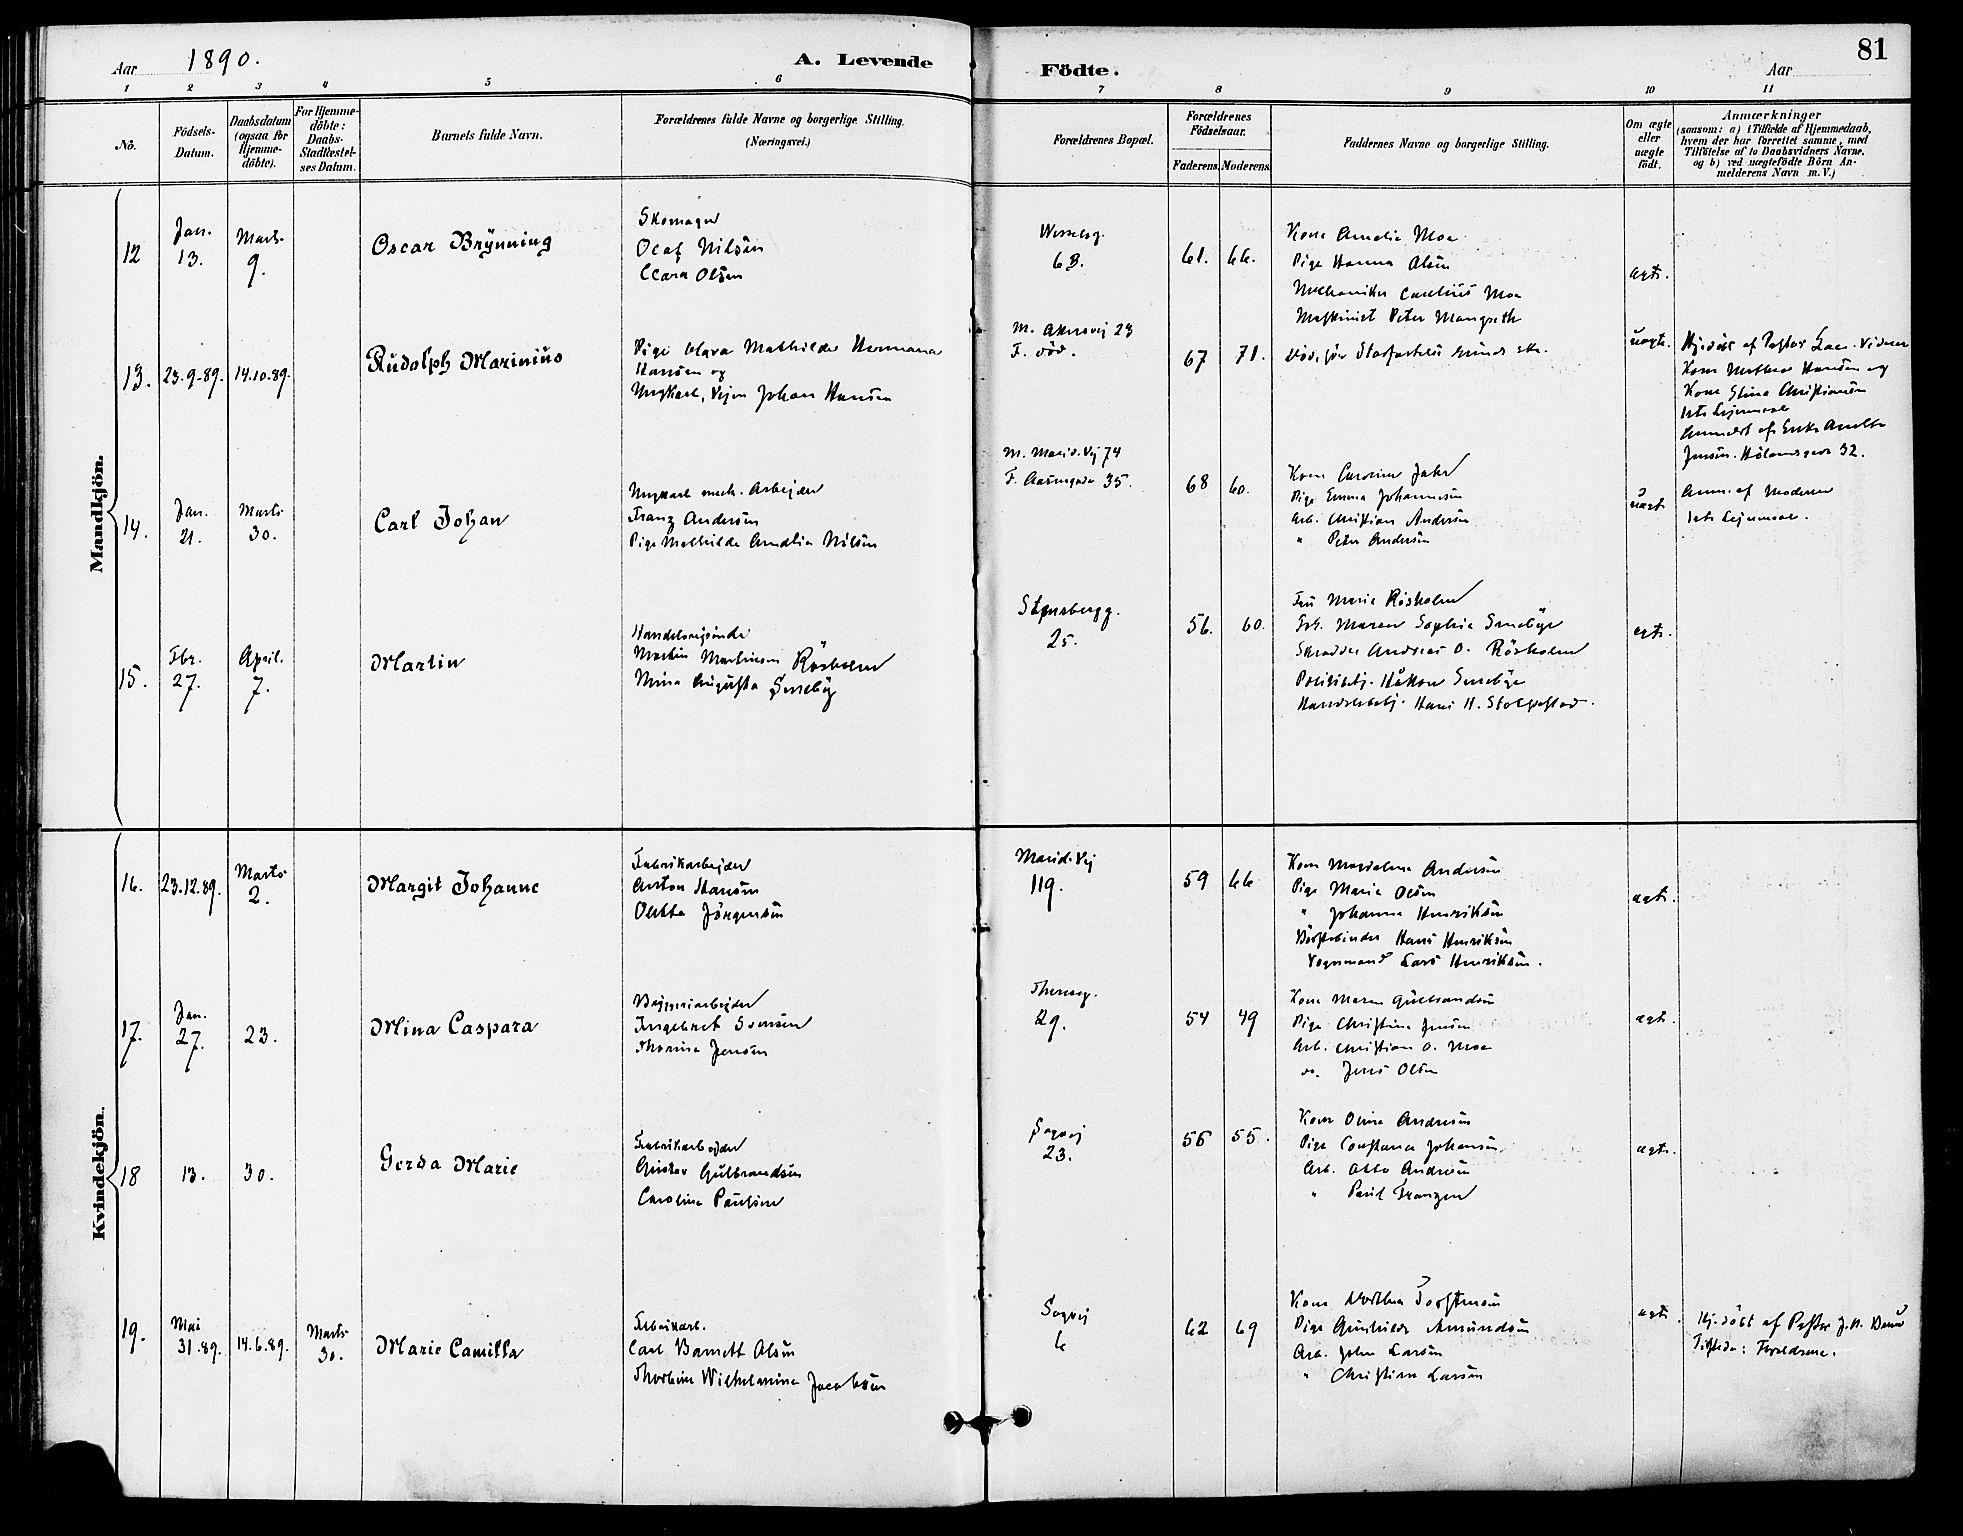 Aar 1890.
A. Levende
Födte.
Aar
81
1 2 3 4 5 6 7 8 9 10 11
No.
Födsels-Datum.
Daabsdatum (ogsaa for Hjemme-döbte).
For Hjemme-döbte: Daabs-Stadfæstel-ses Datum.
Barnets fulde Navn.
Forældrenes fulde Navne og borgerlige Stilling.
(Næringsvei.)
Forældrenes Bopæl.
Forældrenes Födselsaar.
Faderens. Moderens.
Faddernes Navne og borgerlige Stilling.
Om ægte eller uægte födt.
Anmærkninger
(saasom: a) i Tilfælde af Hjemmedaab,
hvem der har forrettet samme, med
Tilföielse af to Daabsvidners Navne,
og b) ved uægtefödte Börn An-
melderens Navn m. V.)
Mandkjön.
12
Jan. 13.
Marts 9.
Oscar Brynning
Skomager
Olaf Nilsen
Clara Olsen
Wesselsg.
63.
61. 66.
Kone Amalie Moe
Pige Hanna Olsen
Mechaniker Carelius Moe
Maskinist Peter
ægte.
13.
23.9-89.
14.10.89.
Rudolph Marinius
Pige Clara Mathilde Hermana
Hansen og
Ungkarl, Johan Hansen
M. Akersvej 23
F. död.
67 71.
uægte.
Hj.döbt af Pastor
Kone Hansen og
Kone Stina Christiansen
1ste Lejermaal
Anmeldt af Enke
Jensen. 32.
14.
Jan. 21.
Marts 30.
Carl Johan
Ungkarl mech. Arbejder
Franz Andersen
Pige Mathilde Amalia Nilsen
M. Marid. Vej 74
F. 35.
68 60.
Kone Caroline
Pige Emma Johannesen
Arb. Christian Andersen
" Peter Andersen
uægte
Anm. af Moderen
1ste Lejermaal.
15.
Fbr. 27.
April. 7.
Martin
Handelsrejsende
Martin Martinsen Rösholm
Mina Augusta Smeby
Stensbergg.
25.
56. 60.
Fru Marie Rösholm
Frk. Maren Sophie Smebye
Skrædder Andreas O. Rösholm
Politibetj. Håkon Smebye
Handelsbetj. Hans H.
ægte.
Kvindekjön.
16.
23.12.89.
Marts 2.
Margit Johanne
Fabrikarbejder
Anton Hansen
Jörgensen
Marid. Vej
119.
59 66
Kone Magdalene Andersen
Pige Marie Olsen
" Johanna Henriksen
Börstebinder Hans Henriksen
Vognmand Lars Henriksen.
ægte.
17.
Jan. 27.
23.
Mina Caspara
Bryggeriarbejder
Ingebret
Thorine Jensen
Theresesg.
29.
54 49
Kone Maren Gulbrandsen
Pige Christine Jensen
Arb. Christian O. Moe
do. Jens Olsen
ægte.
18
13.
30.
Gerda Marie
Fabrikarbejder
Gustav Gulbrandsen
Caroline Paulsen
Sagvej
23.
56 55.
Kone Oline Andersen
Pige Constance Johansen
Arb. Otto Andersen
" Paul Franzen
ægte.
19.
Mai 31.89.
14.6.89.
Marts 30.
Marie Camilla
Fabrikarb.
Carl Barnett Olsen
Wilhelmine Jacobsen
Sagvej
6
62 69
Kone Torstensen
Pige Gunhilde Amundsen
Arb. John Larsen
" Christian Larsen
ægte.
Hj.döbt af Pastor
Forældrene.